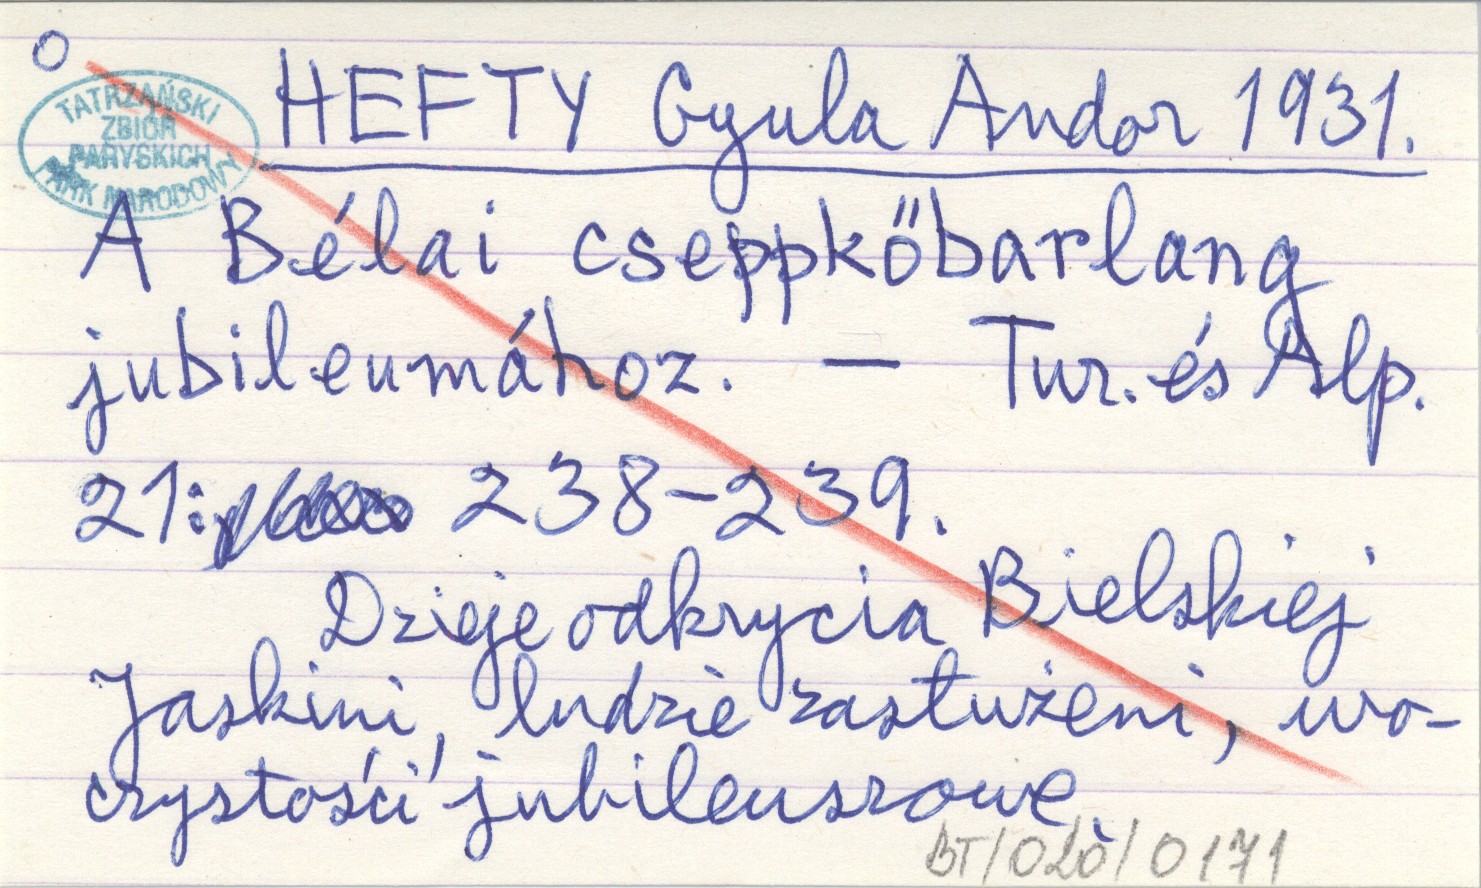 O
TATRZAŃSKI
ZBIÓR
PARYSKICH
PARK NARODOWY
HEFTY Gyula Andor 1931.
A Bélai cseppkőbarlang
jubileumához. — Tur. és Alp.
21: 238-239.
Dzieje odkrycia Bielskiej
Jaskini, ludzie zasłużeni, uro-
czystości jubileuszowe.
BT/020/0171